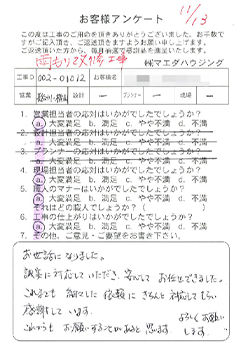 お客様アンケート
11/13
この度は工事のご用命を頂きありがとうございました。お手数で
すがご記入頂き、ご返送頂きますようお願い申し上げます。
雨もり改修工事
㈱マエダハウジング
工事ID 002-01012 お客様名
営業 設計 ー プランナー ー 現場 ー
1. 営業担当者の応対はいかがでしたでしょうか?
a. 大変満足 b. 満足 c. やや不満 d. 不満
2. 設計担当者の応対はいかがでしたでしょうか?
a. 大変満足 b. 満足 c. やや不満 d. 不満
3. プランナーの応対はいかがでしたでしょうか?
a. 大変満足 b. 満足 c. やや不満 d. 不満
4. 現場担当者の応対はいかがでしたでしょうか?
a. 大変満足 b. 満足 c. やや不満 d. 不満
5. 職人のマナーはいかがでしたでしょうか?
a. 大変満足 b. 満足 c. やや不満 d. 不満
それはどの職人でしょうか?( )
6. 工事の仕上がりはいかがでしたでしょうか?
a. 大変満足 b. 満足 c. やや不満 d. 不満
7. その他、ご意見・ご要望をお書き下さい。
お世話になりました。
誠実に対応していただき、安心して お任せできました。
これまでも 細々した 依頼に きちんと 対応してもらい
感謝しています。
これからも お願いすることがあると 思います。
よろしくお願い
します。